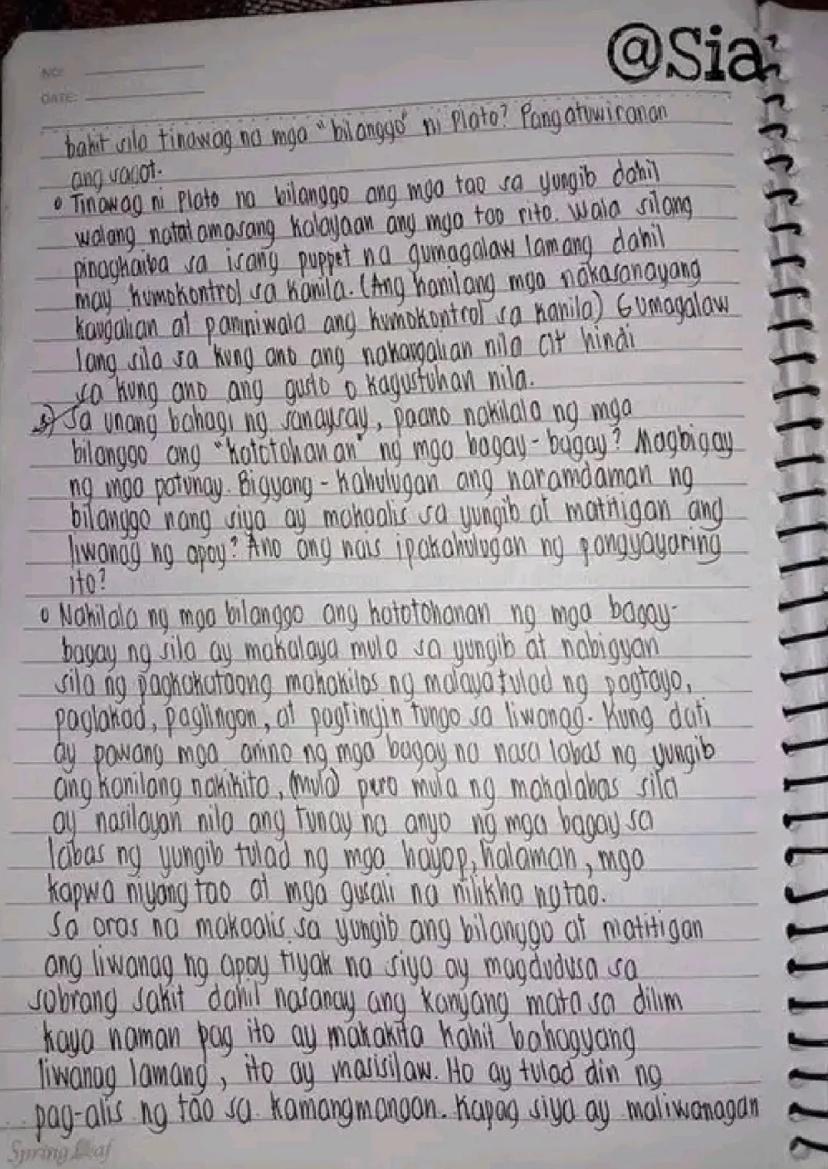 @Sia
NO:
DATE:
bakit sila tinawag na mga "bilanggo" ni Plato? Pangatuwiranan
ang sagot.
Tinawag ni Plato na bilanggo ang mga tao sa yungib dahil
walang natatamasang kalayaan ang mga tao rito. Wala silang
pinagkaiba sa isang puppet na gumagalaw lamang dahil
may kumokontrol sa kanila. (Ang kanilang mga nakasanayang
kaugalian at paniniwala ang kumokontrol sa kanila) Gumagalaw
lang sila sa kung ano ang nakaugalian nila at hindi
sa kung ano ang gusto o kagustuhan nila.
Sa unang bahagi ng sanaysay, paano nakilala ng mga
bilanggo ang "katotohanan" ng mga bagay-bagay? Magbigay
ng mga patunay. Bigyang-kahulugan ang naramdaman ng
bilanggo nang siya ay makaalis sa yungib at matitigan ang
liwanag ng apoy? Ano ang nais ipakahulugan ng pangyayaring
ito?
Nakilala ng mga bilanggo ang katotohanan ng mga bagay-
bagay ng sila ay makalaya mula sa yungib at nabigyan
sila ng pagkakataong makakilos ng malaya tulad ng pagtayo,
paglakad, paglingon, at pagtingin tungo sa liwanag. Kung dati
ay pawang mga anino ng mga bagay na nasa labas ng yungib
ang kanilang nakikita, (mula) pero mula ng makalabas sila
ay nasilayan nila ang tunay na anyo ng mga bagay sa
labas ng yungib tulad ng mga hayop, halaman, mga
kapwa niyang tao at mga gusali na nilikha ng tao.
Sa oras na makaalis sa yungib ang bilanggo at matitigan
ang liwanag ng apoy tiyak na siya ay magdudusa sa
sobrang sakit dahil nasanay ang kanyang mata sa dilim
kaya naman pag ito ay makakita kahit bahagyang
liwanag lamang, ito ay masisilaw. Ito ay tulad din ng
pag-alis ng tao sa kamangmangan. Kapag siya ay maliwanagan
Spring Leaf